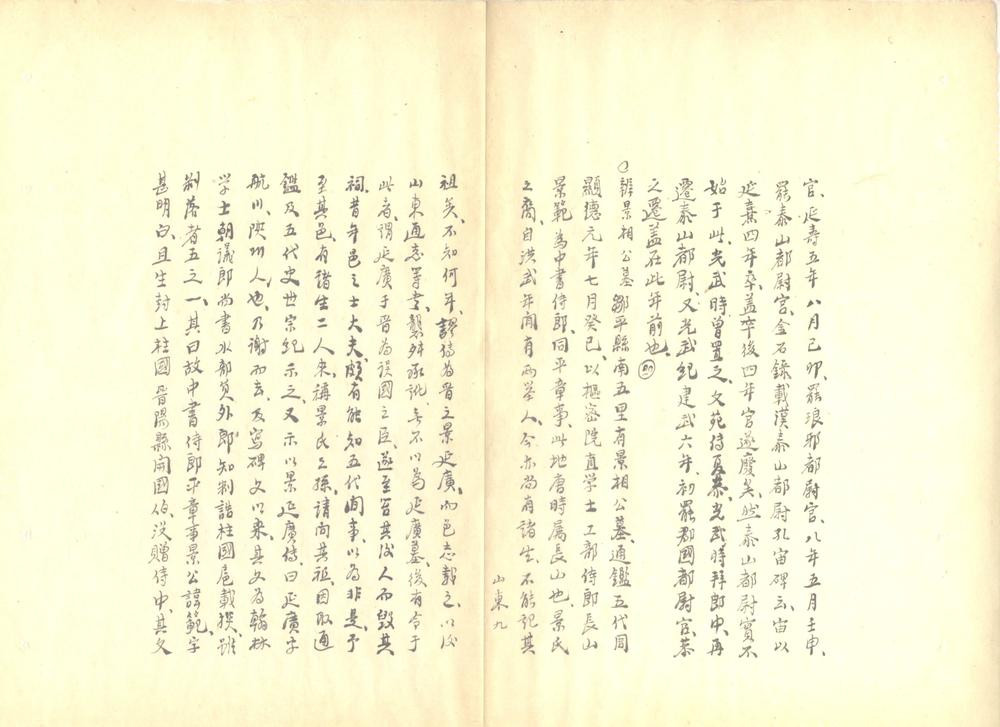 官、延壽五年八月己卯、罷琅邪都尉官、八年五月壬申、
罷泰山都尉官、金石錄載漢泰山都尉孔宙碑云、宙以
延熹四年卒、蓋卒後四年官遂廢矣、然泰山都尉實不
始于此、光武時曾置之、文苑傳夏恭、光武時拜郎中、再
遷泰山都尉、又光武紀建武六年、初罷郡國都尉官、恭
之遷蓋在此年前也、
○辨景相公墓 鄒平縣南五里有景相公墓、通鑑五代周
顯德元年七月癸巳、以樞密院直学士工部侍郎長山
景範為中書侍郎、同平章事、此地唐時属長山也、景氏
之裔、自洪武年間有兩举人、今亦尚有諸生、不能記其
山東九
祖矣、不知何年、謬傳為晋之景延廣、而邑志載之、以後
山東通志等書、襲舛承訛、無不以為延廣墓、後有令于
此者、謂延廣于晋為误國之臣、遂至笞其後人而毁其
祠、昔年邑之士大夫、頗有能知五代間事、以為非是、予
至其邑、有諸生二人来、稱景氏之孫、請問其祖、因取通
鑑及五代史世宗紀示之、又示以景延廣傳、曰延廣字
航川、陝州人也、乃谢而去、及寫碑文以来、其文為翰林
学士朝議郎尚書水部員外郎知制誥柱國扈載撰、雖
剝落者五之一、其曰故中書侍郎平章事景公諱範、字
甚明白、且生封上柱國晉陽縣開國伯、没赠侍中、其文